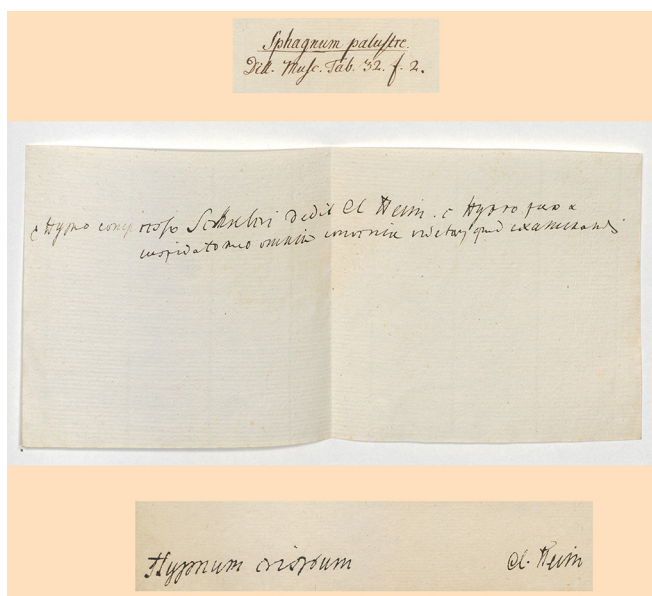 Sphagnum palustre.
Dill. Musc. Tab. 32. f. 2.
c Hypno compresso Schreberi dedit Cl Heim. c Hypno
cuspidato meo omnino convenire videtur, quod examinandum
Hypnum crispum Cl. Heim